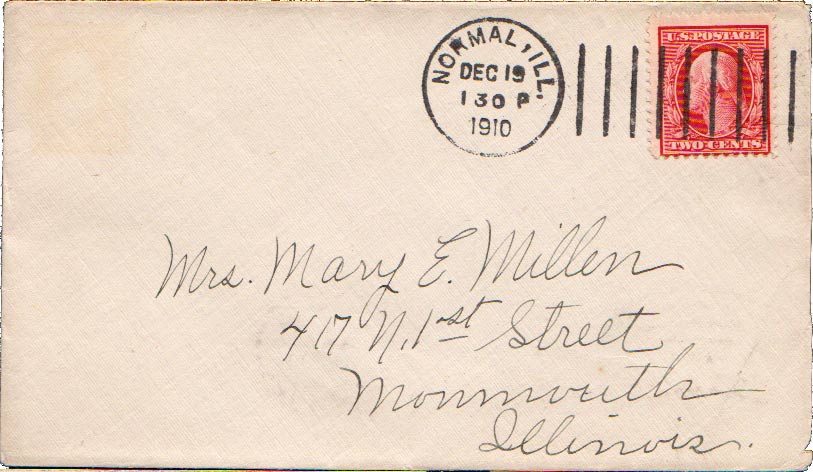 NORMAL, ILL.
DEC 19
1 30 P
1910
U.S. POSTAGE
TWO CENTS
Mrs. Mary E. Millen
417 N. 1st Street
Monmouth
Illinois.